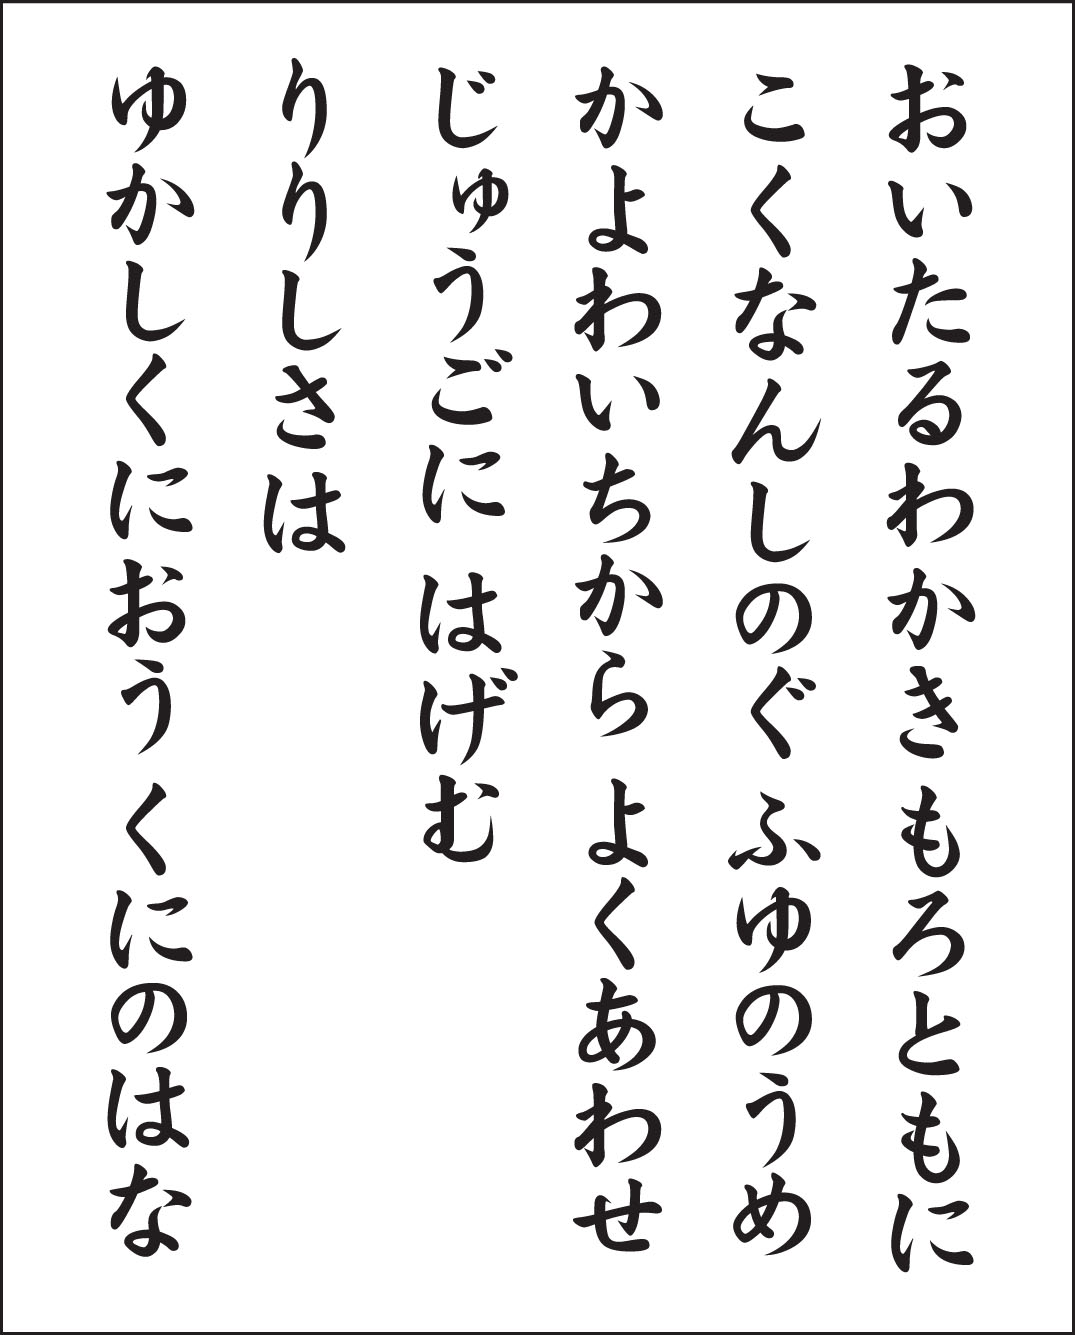 おいたるわかき もろともに
こくなんしのぐ ふゆのうめ
かよわいちから よくあわせ
じゅうごに はげむ
りりしさは
ゆかしくにおう くにのはな